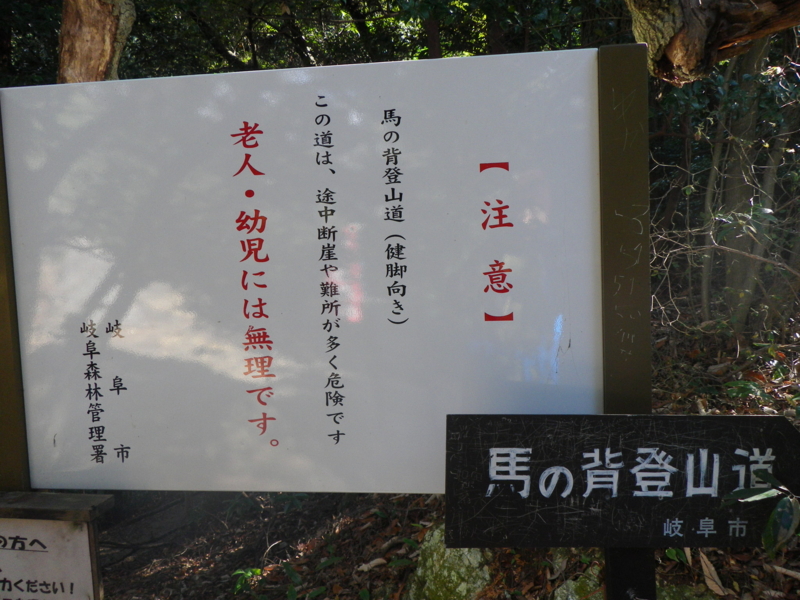 【注意】
馬の背登山道（健脚向き）
この道は、途中断崖や難所が多く危険です
老人・幼児には無理です。
岐阜市
岐阜森林管理署
馬の背登山道
岐阜市
の方へ
力ください!